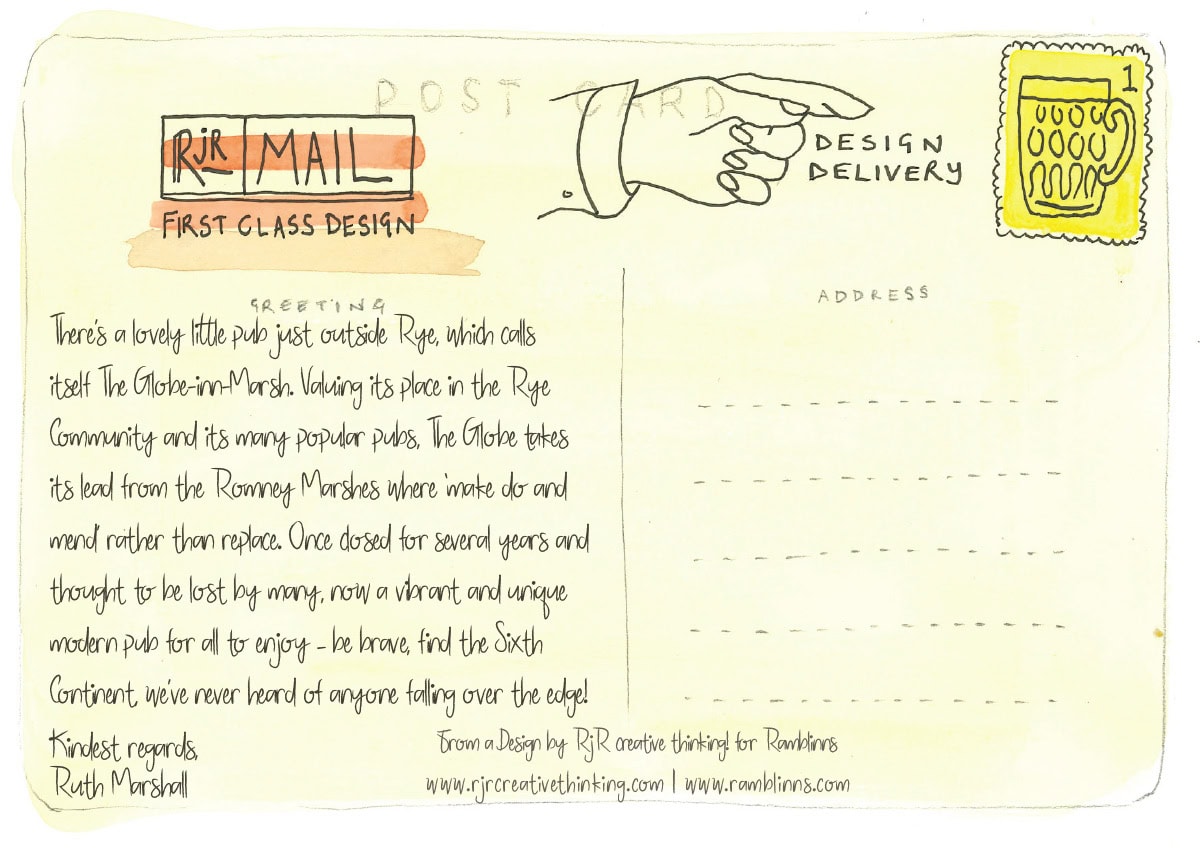 POST CARD
RJR MAIL
FIRST CLASS DESIGN
DESIGN
DELIVERY
1
GREETING
There's a lovely little pub just outside Rye, which calls
itself The Globe-inn-Marsh. Valuing its place in the Rye
Community and its many popular pubs, The Globe takes
its lead from the Romney Marshes where 'make do and
mend' rather than replace. Once closed for several years and
thought to be lost by many, now a vibrant and unique
modern pub for all to enjoy - be brave, find the Sixth
Continent, we've never heard of anyone falling over the edge!
Kindest regards,
Ruth Marshall
ADDRESS
From a Design by RjR creative thinking! for Ramblinns
www.rjrcreativethinking.com | www.ramblinns.com